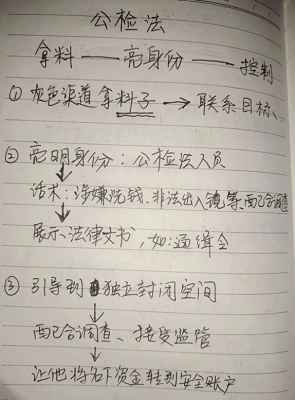 公检法
拿料——亮身份——控制
① 灰色渠道拿料子→联系目标、
② 亮明身份：公检法人员
话术：涉嫌洗钱、非法出入境等，配合调查
展示法律文书，如：通缉令
③ 引导到独立封闭空间
配合调查、接受监管
让他将名下资金转到安全账户